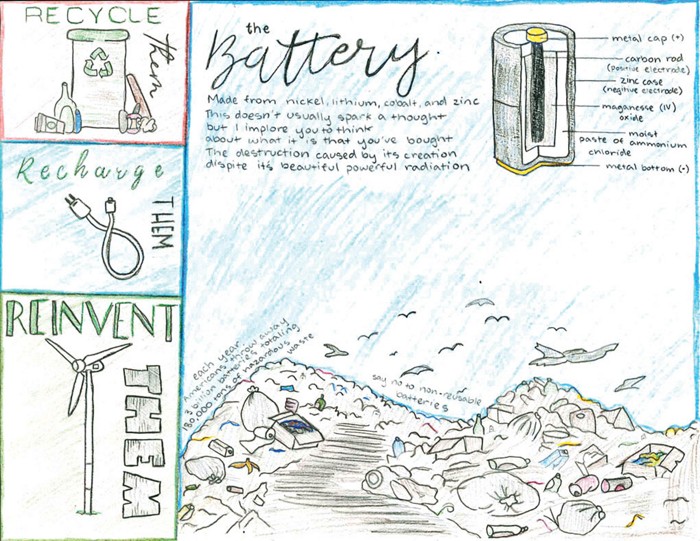 RECYCLE
them
Recharge
THEM
REINVENT
THEM
the
Battery.
Made from nickel, lithium, cobalt, and zinc
This doesn't usually spark a thought
but I implore you to think
about what it is that you've bought
The destruction caused by its creation
dispite its beautiful powerful radiation
metal cap (+)
carbon rod
(positive electrode)
zinc case
(negitive electrode)
maganesse (IV)
oxide
moist
paste of ammonium
chloride
metal bottom (-)
each year,
Americans throw away
3 billion batteries totaling
180,000 tons of hazardous
waste
say no to non-reusable
batteries